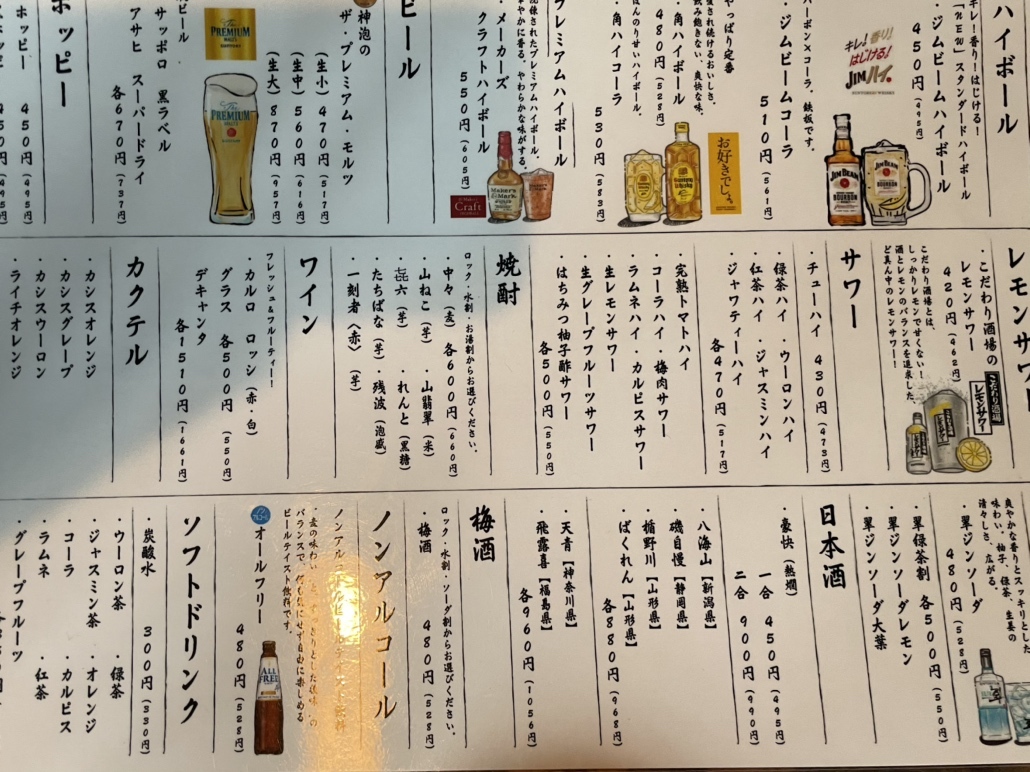 ハイボール
キレ!香り!はじける!
「NEW」スタンダードハイボール
・ジムビームハイボール
450円(495円)
キレ!香り!
はじける!
JIMハイ。
JIM BEAM
BOURBON
JIM BEAM
BOURBON
バーボン×コーラ。鉄板です。
・ジムビームコーラ
510円(561円)
やっぱり定番
・角ハイボール
480円(528円)
・角ハイコーラ
530円(583円)
お好きでしょ。
プレミアムハイボール
・メーカーズ
クラフトハイボール
550円(605円)
Maker's Mark
Craft
ビール
神泡の
ザ・プレミアム・モルツ
(生小) 470円(517円)
(生中) 560円(616円)
(生大) 870円(957円)
The PREMIUM MALT'S
SUNTORY
The PREMIUM
サッポロ 黒ラベル
アサヒ スーパードライ
各670円(737円)
ホッピー
450円(495円)
レモンサワー
・こだわり酒場の
レモンサワー
420円(462円)
こだわり酒場とは、
しっかりレモンで甘くない!
酒とレモンのバランスを追求した
ど真ん中のレモンサワー!
こだわり酒場
レモンサワー
サワー
・チューハイ 430円(473円)
・緑茶ハイ ・ウーロンハイ
・紅茶ハイ ・ジャスミンハイ
・ジャワティーハイ
各470円(517円)
・完熟トマトハイ
・コーラハイ ・梅肉サワー
・ラムネハイ ・カルピスサワー
・生レモンサワー
・生グレープフルーツサワー
・はちみつ柚子酢サワー
各500円(550円)
焼酎
ロック・水割・お湯割からお選びください。
・中々(麦) 各600円(660円)
・山ねこ(芋) ・山翡翠(米)
・㐂六(芋) ・れんと(黒糖)
・たちばな(芋) ・残波(泡盛)
・一刻者〈赤〉(芋)
ワイン
フレッシュ&フルーティー!
・カルロ ロッシ(赤・白)
グラス 各500円(550円)
デキャンタ
各1510円(1661円)
カクテル
・カシスオレンジ
・カシスグレープ
・カシスウーロン
・ライチオレンジ
爽やかな香りとスッキリとした
味わい。柚子、緑茶、生姜の
清々しさ、広がる。
・翠ジンソーダ
480円(528円)
・翠緑茶割 各500円(550円)
・翠ジンソーダレモン
・翠ジンソーダ大葉
翠
日本酒
・豪快(熱燗)
一合 450円(495円)
二合 900円(990円)
・八海山【新潟県】
・磯自慢【静岡県】
・楯野川【山形県】
・ばくれん【山形県】
各880円(968円)
・天青【神奈川県】
・飛露喜【福島県】
各960円(1056円)
梅酒
ロック・水割・ソーダ割からお選びください。
・梅酒 480円(528円)
ノンアルコール
ビールテイスト飲料です。
ノンアルコール
・オールフリー
480円(528円)
ALL-FREE
ソフトドリンク
・炭酸水 300円(330円)
・ウーロン茶 ・緑茶
・ジャスミン茶 ・オレンジ
・コーラ ・カルピス
・ラムネ ・紅茶
・グレープフルーツ